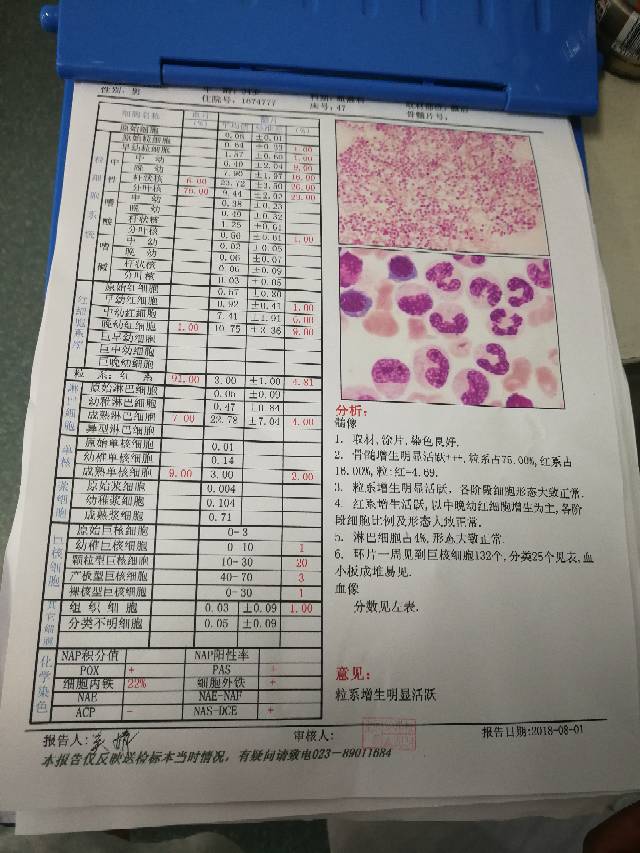 性别: 男
住院号: 1674777
床号: 47
骨髓片号:
细胞名称
血片
(%)
髓片
(%)
原始细胞 0.08 ±0.01
原始粒细胞 0.64 ±0.33 1.00
早幼粒细胞 1.57 ±0.60 1.00
粒细胞系统
中性
中 幼 6.49 ±2.04 9.00
晚 幼 7.90 ±1.97 16.00
杆状核 6.00 23.72 ±3.50 26.00
分叶核 76.00 9.44 ±2.92 23.00
嗜酸
中 幼 0.38 ±0.23
晚 幼 0.49 ±0.32
杆状核 1.25 ±0.61
分叶核 0.86 ±0.61 1.00
嗜碱
中 幼 0.02 ±0.05
晚 幼 0.06 ±0.07
杆状核 0.06 ±0.09
分叶核 0.03 ±0.05
红细胞系统
原始红细胞 0.57 ±0.30
早幼红细胞 0.92 ±0.41 1.00
中幼红细胞 7.41 ±1.91 6.00
晚幼红细胞 1.00 10.75 ±3.36 9.00
巨早幼细胞
巨中幼细胞
巨晚幼细胞
粒 系:红 系 91.00 3.00 ±1.00 4.81
淋巴细胞
原始淋巴细胞 0.05 ±0.09
幼稚淋巴细胞 0.47 ±0.84
成熟淋巴细胞 7.00 22.78 ±7.04 4.00
异型淋巴细胞
单核
原始单核细胞 0.01
幼稚单核细胞 0.14
成熟单核细胞 9.00 3.00 2.00
浆细胞
原始浆细胞 0.004
幼稚浆细胞 0.104
成熟浆细胞 0.71
巨核细胞
原始巨核细胞 0-3
幼稚巨核细胞 0 10 1
颗粒型巨核细胞 10-30 20
产板型巨核细胞 40-70 3
裸核型巨核细胞 0-30 1
其它细胞
组 织 细 胞 0.03 ±0.09 1.00
分类不明细胞 0.05 ±0.09
化学染色
NAP积分值 NAP阳性率
POX + PAS +
细胞内铁 22% 细胞外铁 +
NAE NAE-NAF
ACP - NAS-DCE +
分析:
髓像
1. 取材,涂片,染色良好.
2. 骨髓增生明显活跃+++.粒系占75.00%,红系占
16.00%,粒:红=4.69.
3. 粒系增生明显活跃, 各阶段细胞形态大致正常.
4. 红系增生活跃,以中晚幼红细胞增生为主,各阶
段细胞比例及形态大致正常.
5. 淋巴细胞占4%,形态大致正常.
6. 环片一周见到巨核细胞132个,分类25个见表.血
小板成堆易见.
血像
分数见左表.
意见:
粒系增生明显活跃
报告人:
审核人:
报告日期:2018-08-01
本报告仅反映送检标本当时情况,有疑问请致电023-89011684